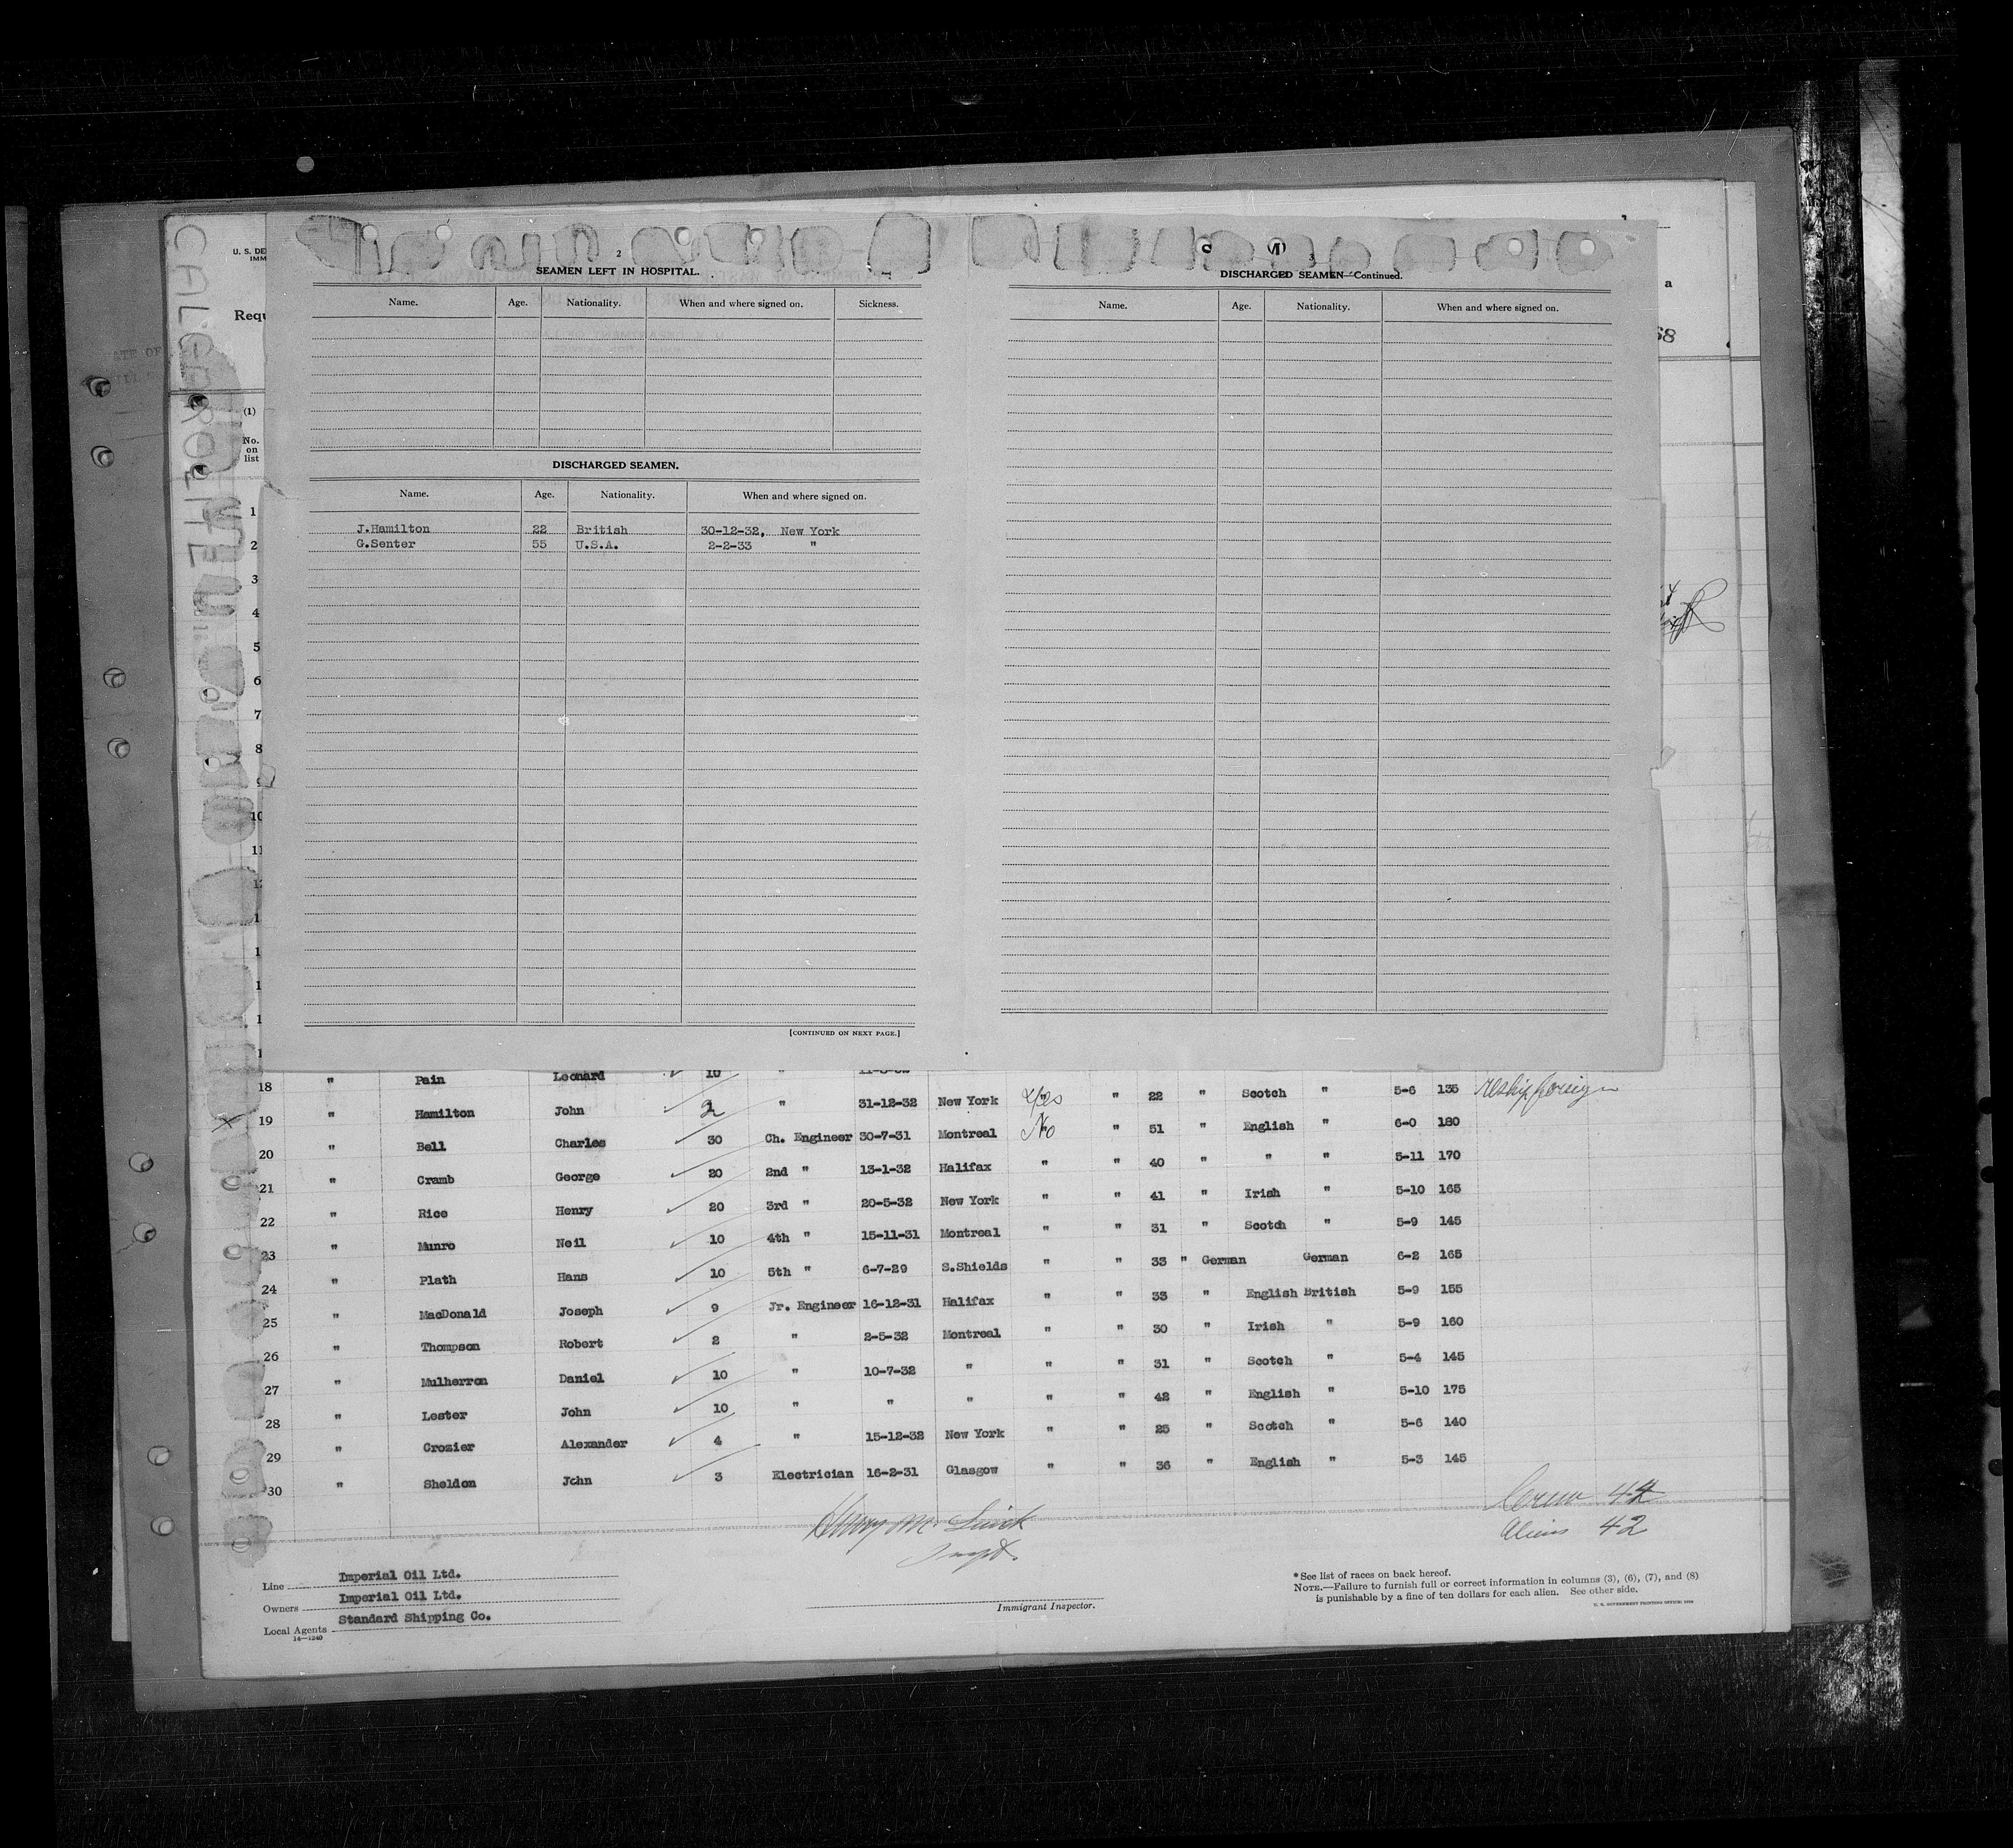 CALGAROLITE
U. S. DE
IMM
Requ
(1)
No.
on
list
2
SEAMEN LEFT IN HOSPITAL.
Name. Age. Nationality. When and where signed on. Sickness.
DISCHARGED SEAMEN.
Name. Age. Nationality. When and where signed on.
J.Hamilton 22 British 30-12-32, New York
G.Senter 55 U.S.A. 2-2-33 "
[CONTINUED ON NEXT PAGE.]
DISCHARGED SEAMEN—Continued.
Name. Age. Nationality. When and where signed on.
a
68
1
2
3
4
5
6
7
8
9
10
11
18 " Pain Leonard 10 "
19 " Hamilton John 2 " 31-12-32 New York Yes " 22 " Scotch " 5-6 135 reship foreign
20 " Bell Charles 30 Ch. Engineer 30-7-31 Montreal No " 51 " English " 6-0 180
21 " Cramb George 20 2nd " 13-1-32 Halifax " " 40 " " " 5-11 170
22 " Rice Henry 20 3rd " 20-5-32 New York " " 41 " Irish " 5-10 165
23 " Munro Neil 10 4th " 15-11-31 Montreal " " 31 " Scotch " 5-9 145
24 " Plath Hans 10 5th " 6-7-29 S.Shields " " 33 " German German 6-2 165
25 " MacDonald Joseph 9 Jr. Engineer 16-12-31 Halifax " " 33 " English British 5-9 155
26 " Thompson Robert 2 " 2-5-32 Montreal " " 30 " Irish " 5-9 160
27 " Mulherron Daniel 10 " 10-7-32 " " " 31 " Scotch " 5-4 145
28 " Lester John 10 " " " " " 42 " English " 5-10 175
29 " Crozier Alexander 4 " 15-12-32 New York " " 25 " Scotch " 5-6 140
30 " Sheldon John 3 Electrician 16-2-31 Glasgow " " 36 " English " 5-3 145
Crew 42
Aliens 42
Line Imperial Oil Ltd.
Owners Imperial Oil Ltd.
Local Agents Standard Shipping Co.
14—1240
Immigrant Inspector.
* See list of races on back hereof.
NOTE.—Failure to furnish full or correct information in columns (3), (6), (7), and (8)
is punishable by a fine of ten dollars for each alien. See other side.